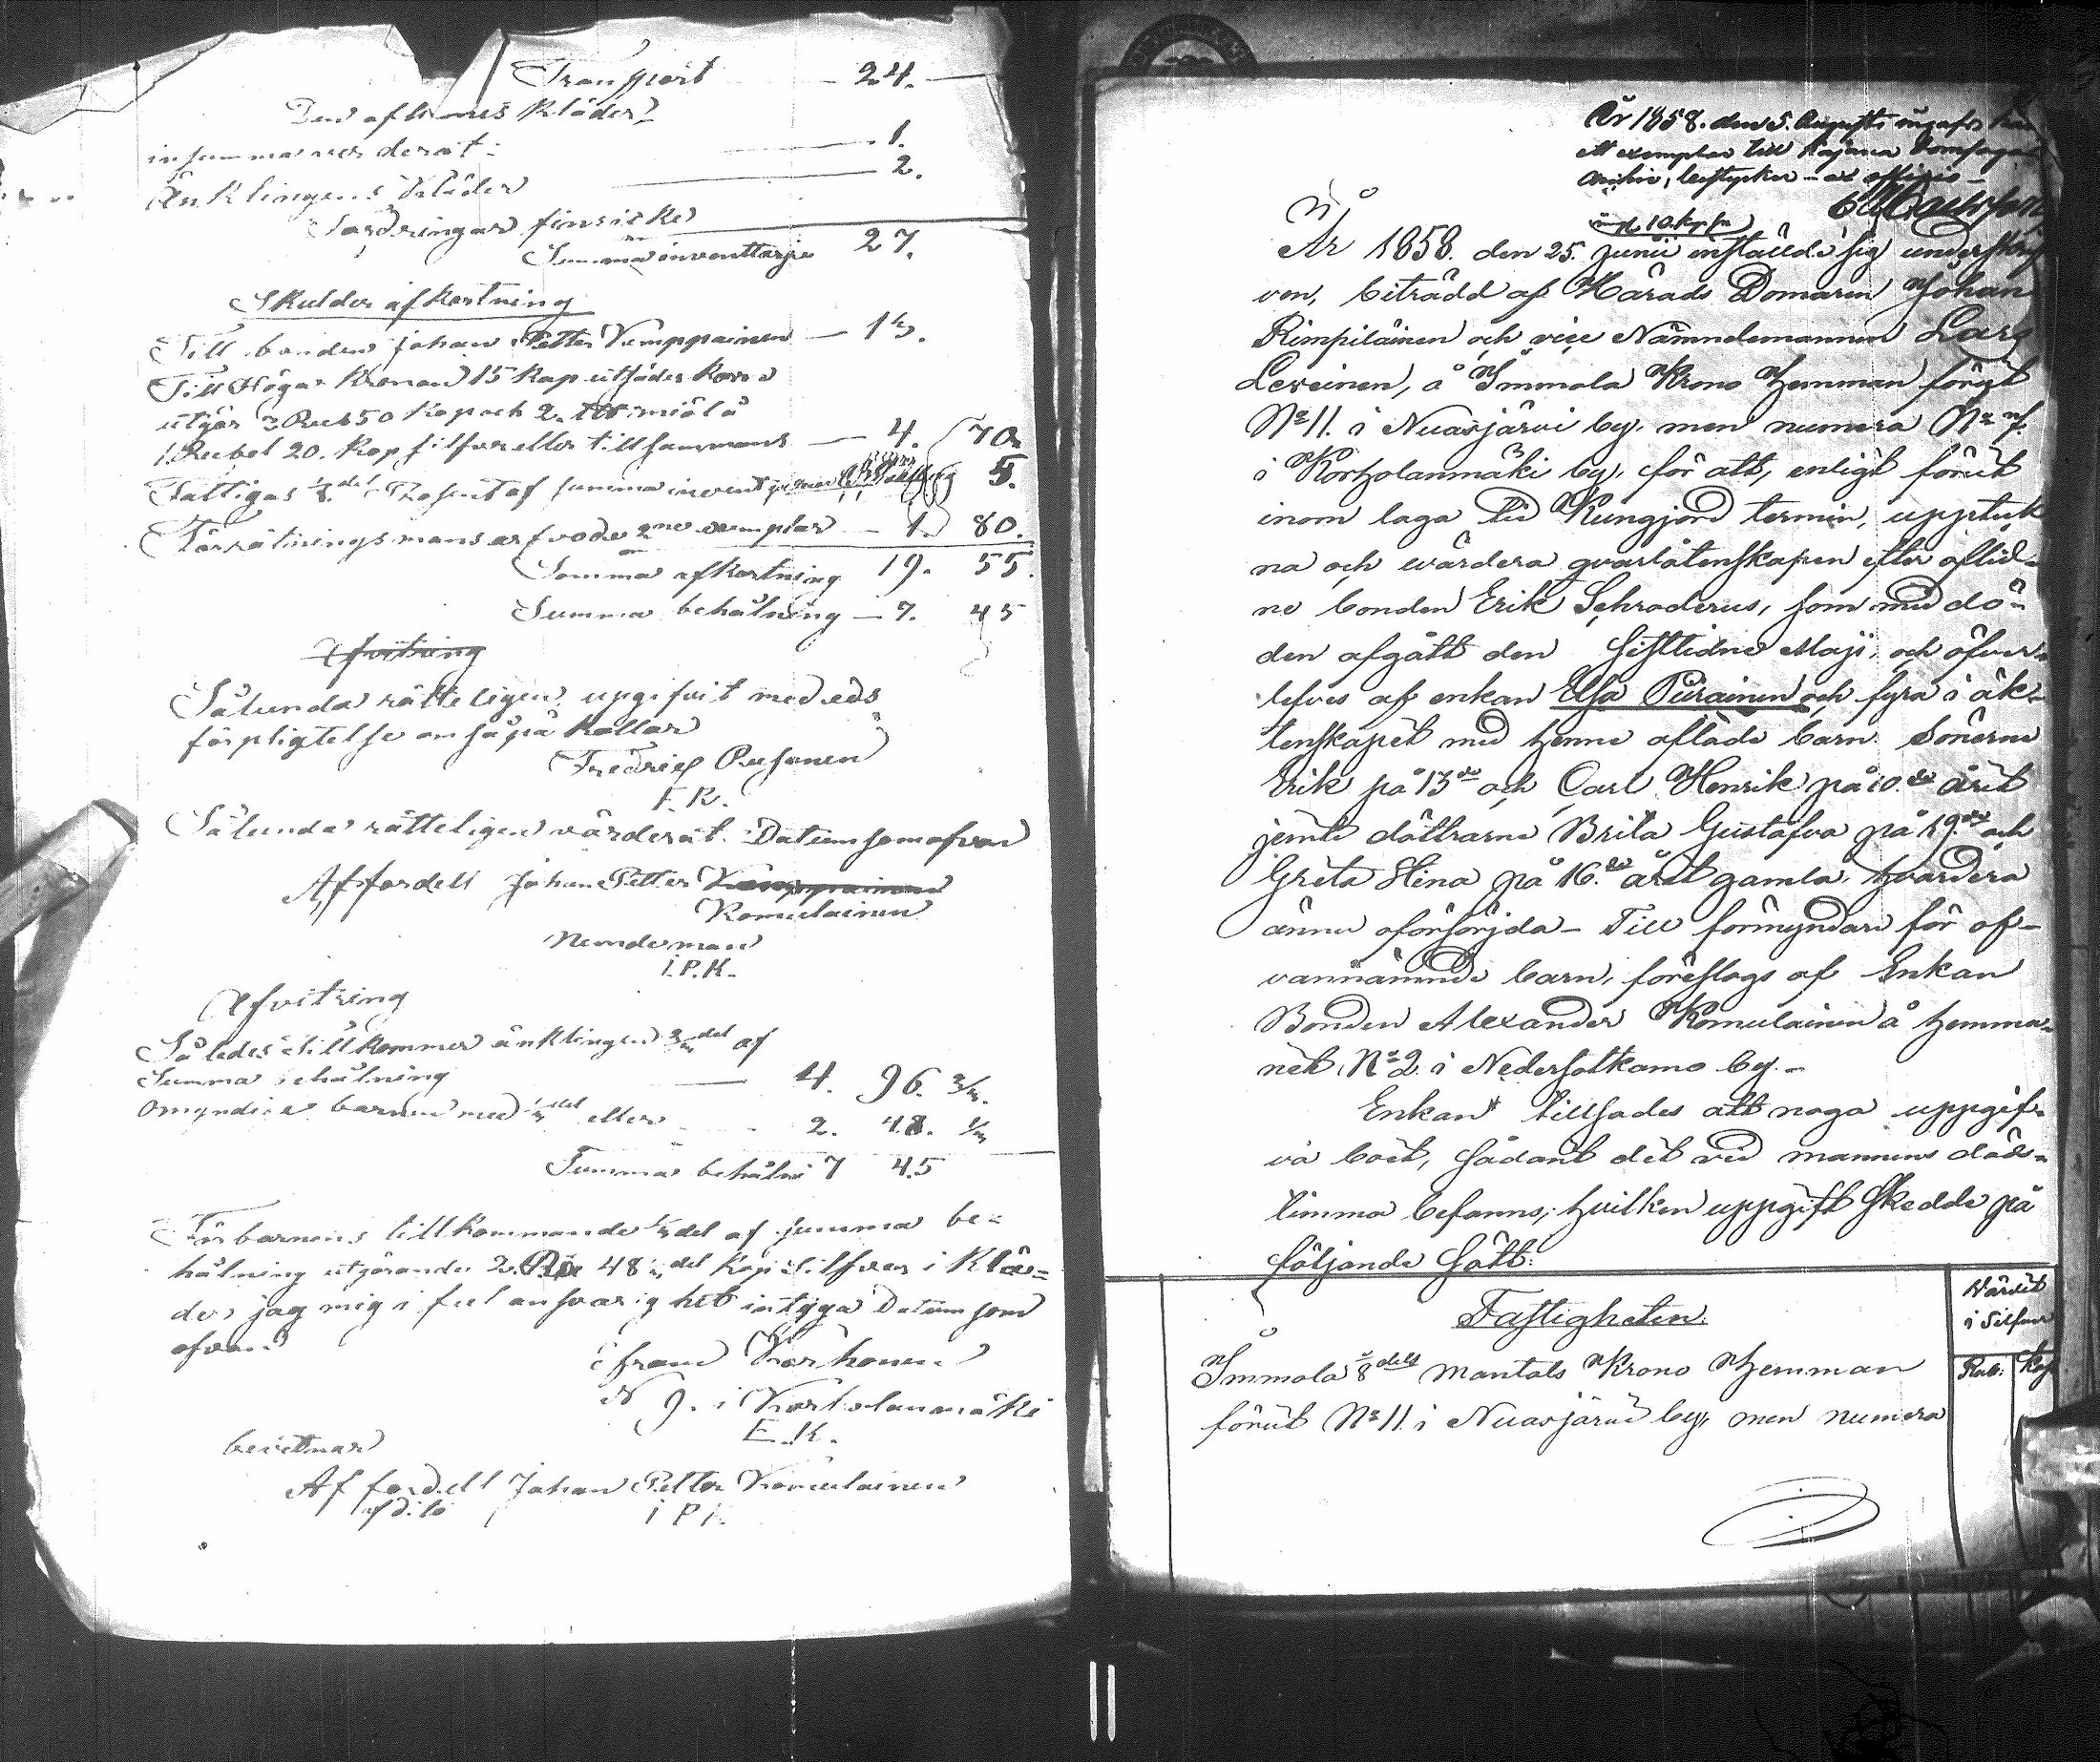 Transport — 24. —
Den aflidnes kläder
in summa verderat: — 1.
Änklingens kläder — 2.
Fordringar finnes icke
Summa inventtarje 27.
Skulder afkortning
Till bonden Johan Petter Kemppainen — 13.
Till Höga Kronan 15 kap utsädes korn
utgör 3 Rub 50 kop och 2 mjöl à
1. Rubel 20. Kop silfver eller tillsammans — 4. 70.
Fattigas 1/8 del Prosent af summa inventarje 5.
Förrätnings mans arfvode 2ne exemplar — 1. 80.
Summa afkortning 19. 55.
Summa behålning — 7. 45
Afvitring
Sålunda rätteligen uppgifvit med eds
förpligtelse om så på kallas
Fredrich Pusonen
F. R.
Sålunda rätteligen värderat. Datum som ofvan
Af fordell Johan Petter Kemppainen
Komulainen
Nemdeman
I. P. K.
Afvitring
Således tillkommer änklingen 2/3 del af
Summa behålning — 4. 96. 2/3.
Omyndiga barnen med 1/3 del eller — 2. 48. 1/3
Summa behåln 7 45
För barnens tillkommande 1/3 del af summa be=
hålning utgörande 2 Rub 48 1/3 del kop silfver i klä=
der, jag mig i full ansvarighet intyga Datum som
ofvan
Efraim Korhonen
N 9. i Kortolanmäki
E. K.
bevitnar
Af fordell Johan Petter Komulainen
I P K.
År 1858. den 5. Augusti ingafs
ett exemplar till Kajana Domsagas
Archiv, betyder – ex officio –
10. kop
N:o
År 1858. den 25. Junii instälde sig underskrif
ven, biträdd af Härads Domaren Johan
Rimpiläinen och vice Nämndemannen Lars
Leveinen, å Immola Krono Hemman förut
No 11. i Nuasjärvi by, men numera No 7.
i Korholanmäki by, för att, enligt förut
inom laga tid Kungjord termin, upptek
na och värdera qvarlåtenskapen efter aflid=
ne bonden Erik Schroderus, som med dö=
den afgått den sistledne Maji, och öfver=
lefves af enkan Elsa Piirainen och fyra i äk=
tenskapet med henne aflade barn. Sönerne
Erik på 13de och Carl Henrik på 10.de året
jemte döttrarne Brita Gustafva på 19.de och
Greta Stina på 16.de året gamla, hvardera
ännu oförsörjda – Till förmyndare för of=
vannämnde barn, föreslogs af Enkan
Bonden Alexander Komulainen å hemma=
net No 2 i Nedersotkamo by. –
Enkan tillsades att noga uppgif=
va boet, sådant det vid mannens döds=
timma befanns, hvilken uppgift skedde på
följande sätt:
Fastigheten:
Värdet
i Silfver
Rub: Kop
Immola 1/8 dels Mantals Krono Hemman
förut No 11. i Nuasjärvi by, men numera